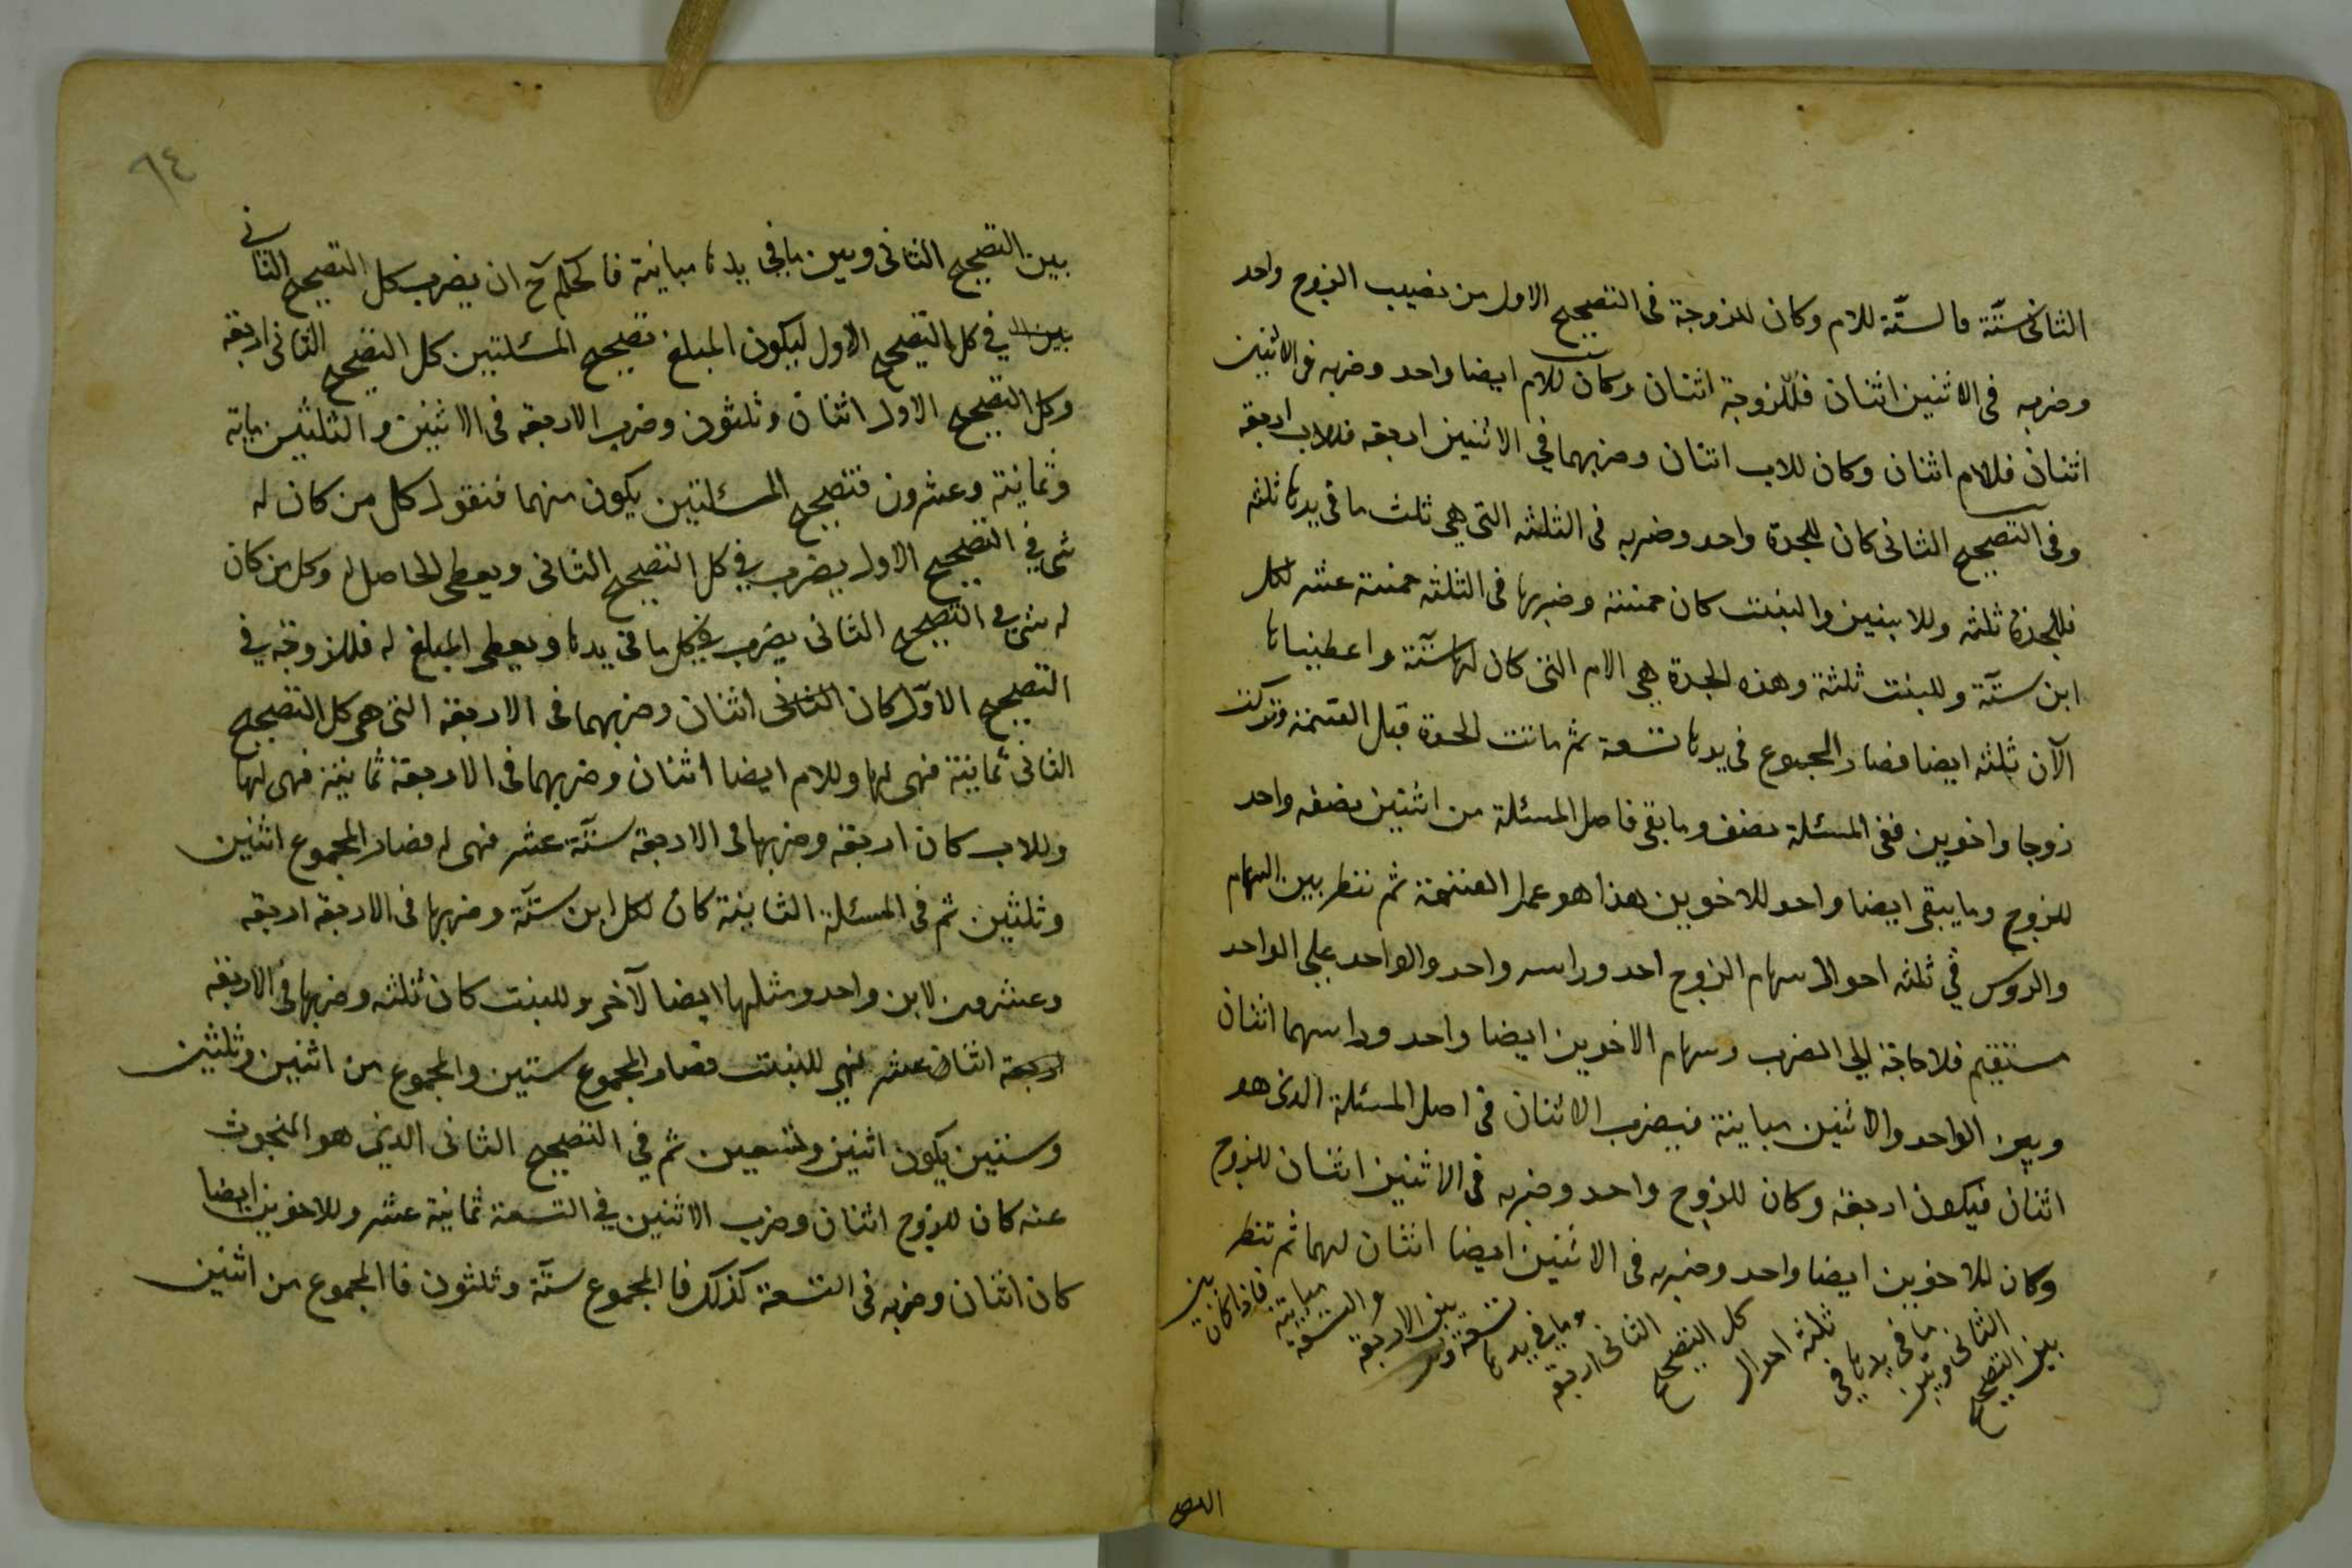 الثانى ستّة فالستّة للام وكان للزوجة فى التصحيح الاول من نصيب الزوج واحد
وضربه فى الاثنين اثنان فللزوجة اثنان وكان للام ايضا واحد وضربه فى الاثنين
اثنان فللام اثنان وكان للاب اثنان وضربهما في الاثنين اربعة فللاب اربعة
وفى التصحيح الثانى كان للجدة واحد وضربه فى الثلثه التى هي ثلث ما فى يدها ثلثه
فللجدة ثلثه وللابنين والبنت كان خمسة وضربها فى الثلثه خمسة عشر لكل
ابن ستّة وللبنت ثلثة وهذه الجدة هي الام التى كان لها ستّة واعطيناها
الآن ثلثه ايضا فصار المجموع فى يدها تسعة ثم ماتت الجدة قبل القسمة وتركت
زوجا واخوين ففى المسئلة نصف وما بقى فاصل المسئلة من اثنين نصفه واحد
للزوج وما يبقى ايضا واحد للاخوين هذا هو عمل القسمة ثم ننظر بين السهام
والروس في ثلثه احوال سهام الزوج احد وراسه واحد والواحد على الواحد
مستقيم فلا حاجة الي الضرب وسهام الاخوين ايضا واحد وراسهما اثنان
وبين الواحد والاثنين مباينة فيضرب الاثنان فى اصل المسئلة الذى هو
اثنان فيكون اربعة وكان للزوج واحد وضربه فى الاثنين اثنان للزوج
وكان للاخوين ايضا واحد وضربه فى الاثنين ايضا اثنان لهما ثم ننظر
بين التصحيح
الثانى وبين
ما فى يدها فى
ثلثه احوال
كل التصحيح
الثانى اربعة
وما فى يدها
تسعة
بين الاربعة
والتسعة
مباينة
فاذا كان بين
٦٤
بين التصحيح الثانى وبين ما فى يدها مباينة فالحكم ح ان يضرب كل التصحيح الثانى
في كل التصحيح الاول ليكون المبلغ تصحيح المسئلتين كل التصحيح الثانى اربعة
وكل التصحيح الاول اثنان وثلثون وضرب الاربعة فى الاثنين والثلثين ماية
وثمانية وعشرون فتصحيح المسئلتين يكون منهما فنقول كل من كان له
شى في التصحيح الاول يضرب في كل التصحيح الثانى ويعطى الحاصل له وكل من كان
له شى في التصحيح الثانى يضرب في كل ما فى يدها ويعطى المبلغ له فللزوجة في
التصحيح الاوّل كان الثانى اثنان وضربهما فى الاربعة التى هى كل التصحيح
الثانى ثمانية فهى لها وللام ايضا اثنان وضربهما فى الاربعة ثمانية فهى لها
وللاب كان اربعة وضربها فى الاربعة ستّة عشر فهى له فصار المجموع اثنين
وثلثين ثم فى المسئلة الثانية كان لكل ابن ستّة وضربها فى الاربعة اربعة
وعشرون لابن واحد ومثلها ايضا لآخر وللبنت كان ثلثه وضربها فى الاربعة
اربعة اثنان عشر فهي للبنت فصار المجموع ستين والمجموع من اثنين وثلثين
وستين يكون اثنين وتسعين ثم في التصحيح الثانى الذي هو المبحوث
عنه كان للزوج اثنان وضرب الاثنين في التسعة ثمانية عشر وللاخوين ايضا
كان اثنان وضربه فى التسعة كذلك فالمجموع ستّة وثلثون فالمجموع من اثنين